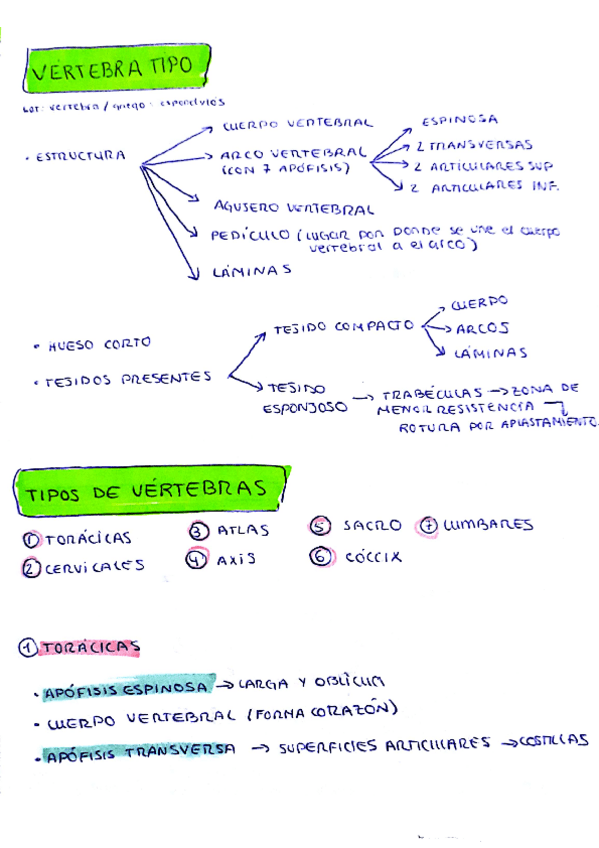 VÉRTEBRA TIPO
Lat: vertebra / griego: espondylos
• ESTRUCTURA
CUERPO VERTEBRAL
ARCO VERTEBRAL
(CON 7 APÓFISIS)
ESPINOSA
2 TRANSVERSAS
2 ARTICULARES SUP
2 ARTICULARES INF.
AGUJERO VERTEBRAL
PEDÍCULO (LUGAR POR DONDE se une el cuerpo
vertebral a el arco)
LÁMINAS
• HUESO CORTO
• TEJIDOS PRESENTES
TEJIDO COMPACTO
CUERPO
ARCOS
LÁMINAS
TEJIDO
ESPONJOSO → TRABÉCULAS → ZONA DE
MENOR RESISTENCIA
ROTURA POR APLASTAMIENTO.
TIPOS DE VÉRTEBRAS
① TORÁCICAS ③ ATLAS ⑤ SACRO ⑦ LUMBARES
② CERVICALES ④ AXIS ⑥ CÓCCIX
① TORÁCICAS
• APÓFISIS ESPINOSA → LARGA Y OBLICUA
• CUERPO VERTEBRAL (FORMA CORAZÓN)
• APÓFISIS TRANSVERSA → SUPERFICIES ARTICULARES → COSTILLAS